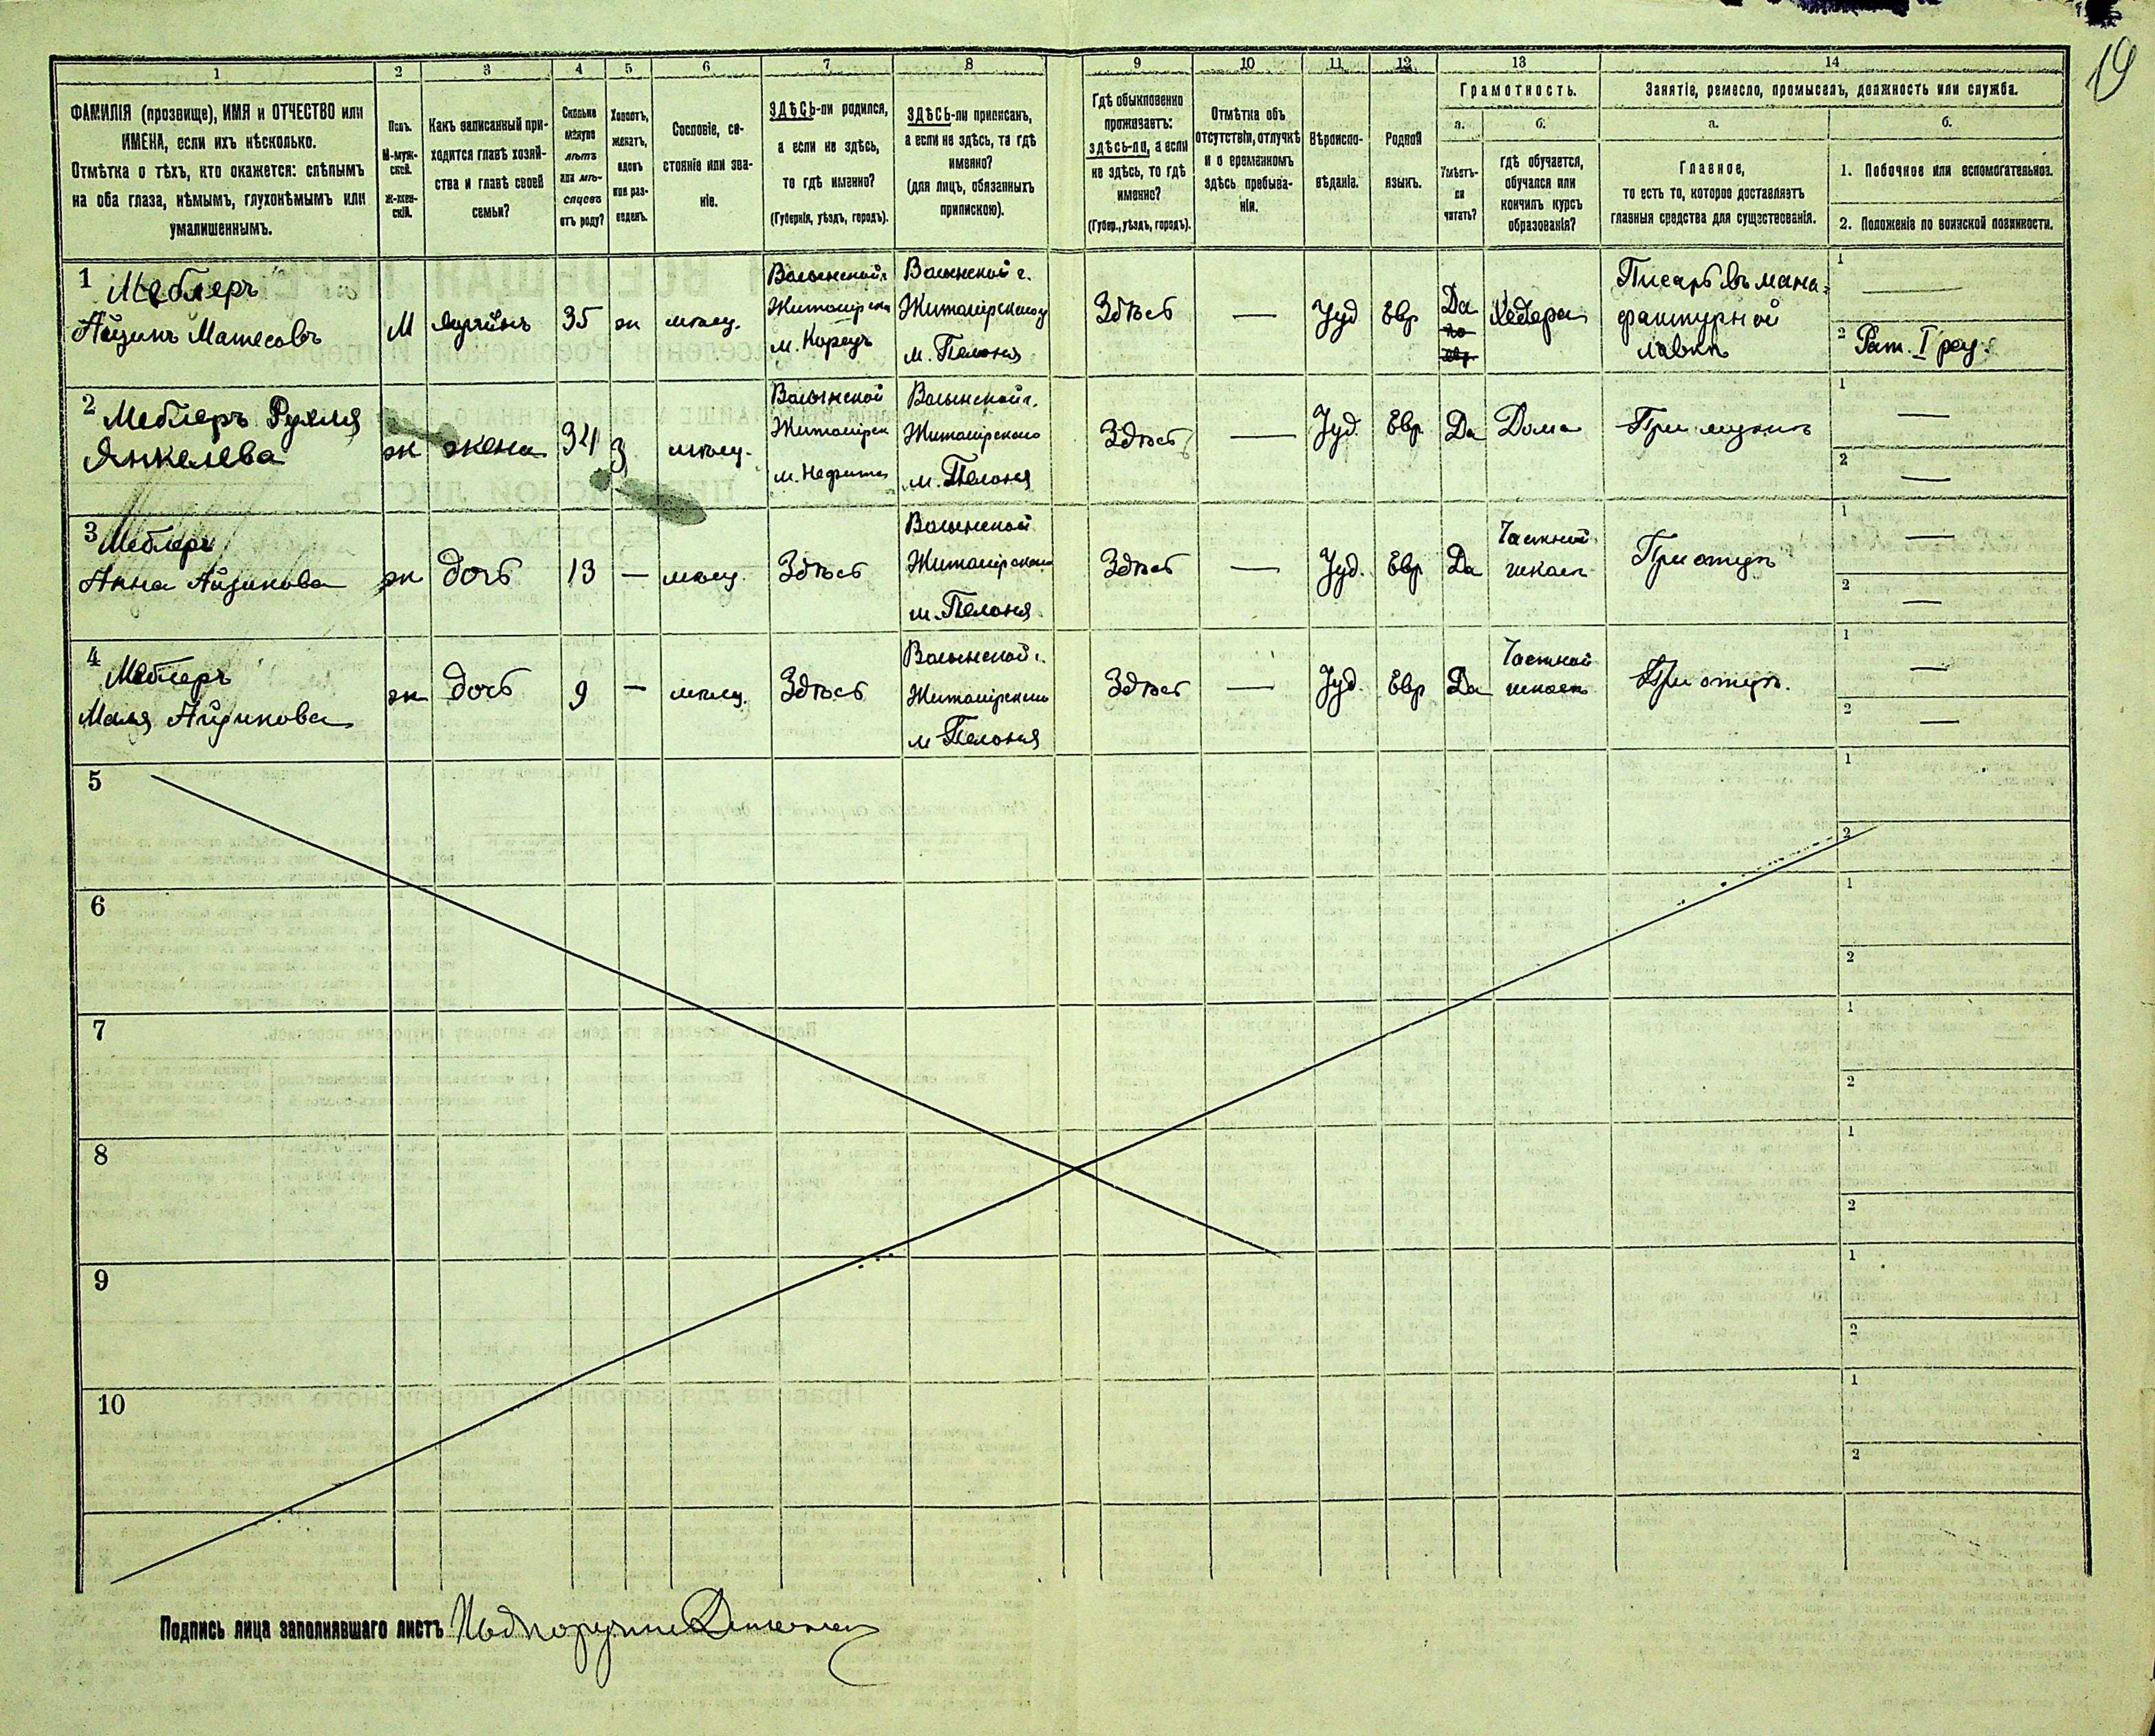 19
1 2 3 4 5 6 7 8 9 10 11 12 13 14
ФАМИЛІЯ (прозвище), ИМЯ и ОТЧЕСТВО или
ИМЕНА, если ихъ нѣсколько.
Отмѣтка о тѣхъ, кто окажется: слѣпымъ
на оба глаза, нѣмымъ, глухонѣмымъ или
умалишеннымъ.
Полъ.
М-муж-
ской.
Ж-жен-
скій.
Какъ записанный при-
ходится главѣ хозяй-
ства и главѣ своей
семьи?
Сколько
минуло
лѣтъ
или мѣ-
сяцевъ
отъ роду?
Холостъ,
женатъ,
вдовъ
или раз-
веденъ.
Сословіе, со-
стояніе или зва-
ніе.
ЗДѢСЬ-ли родился,
а если не здѣсь,
то гдѣ именно?
(Губернія, уѣздъ, городъ).
ЗДѢСЬ-ли приписанъ,
а если не здѣсь, то гдѣ
именно?
(для лицъ, обязанныхъ
припискою).
Гдѣ обыкновенно
проживаетъ:
здѣсь-ли, а если
не здѣсь, то гдѣ
именно?
(Губер., уѣздъ, городъ).
Отмѣтка объ
отсутствіи, отлучкѣ
и о временномъ
здѣсь пребыва-
ніи.
Вѣроиспо-
вѣданіе.
Родной
языкъ.
Грамотность.
а.
Умѣетъ-
ли
читать?
б.
гдѣ обучается,
обучался или
кончилъ курсъ
образованія?
Занятіе, ремесло, промыселъ, должность или служба.
а.
Главное,
то есть то, которое доставляетъ
главныя средства для существованія.
б.
1. Побочное или вспомогательное.
2. Положеніе по воинской повинности.
1 Меблеръ
Айзикъ Матесовъ
М
хозяинъ
35
ж
мѣщ.
Волынской г.
Житомірска
м. Корецъ
Волынской г.
Житомірскаго у
м. Полонна
Здѣсь
—
Іуд
Евр
Да
по
евр.
Хедера
Писарь въ ману-
фактурной
лавкѣ
1 —
2 Рат. I раз.
2 Меблеръ Рухля
Янкелева
ж
жена
34
З
мѣщ.
Волынской
Житомірск
Волынской г.
Житомірскаго
м. Полонна
Здѣсь
—
Іуд.
Евр
Да
Дома
При мужѣ
1 —
2 —
3 Меблеръ
Анна Айзикова
ж
дочь
13
—
мѣщ.
Здѣсь
Волынской
Житомірскаго
м. Полонна
Здѣсь
—
Іуд.
Евр
Да
Частной
школѣ
При отцѣ
1 —
2 —
4 Меблеръ
Маля Айзикова
ж
дочь
9
—
мѣщ.
Здѣсь
Волынской г.
Житомірскаго
м Полонна
Здѣсь
—
Іуд.
Евр
Да
Частной
школѣ
При отцѣ.
1 —
2 —
5
1
2
6
1
2
7
1
2
8
1
2
9
1
2
10
1
2
Подпись лица заполнявшаго листъ